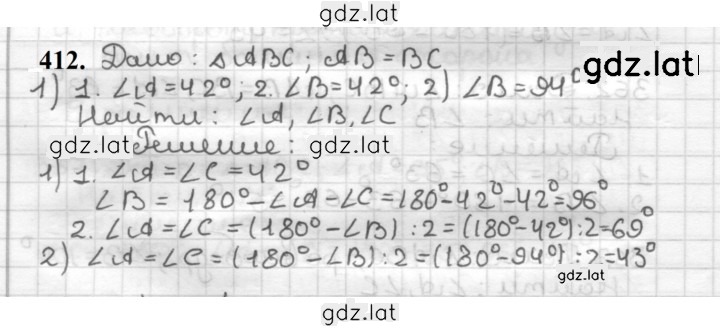 gdz.lat
412. Дано: △ABC; AB=BC
1) 1. ∠A=42°; 2. ∠B=42°; 2) ∠B=94°
gdz.lat
Найти: ∠A, ∠B, ∠C
gdz.lat Решение: gdz.lat
1) 1. ∠A=∠C=42°
∠B=180°-∠A-∠C=180°-42°-42°=96°
2. ∠A=∠C=(180°-∠B):2=(180°-42°):2=69°
2) ∠A=∠C=(180°-∠B):2=(180°-94°):2=43°
gdz.lat
gdz.lat